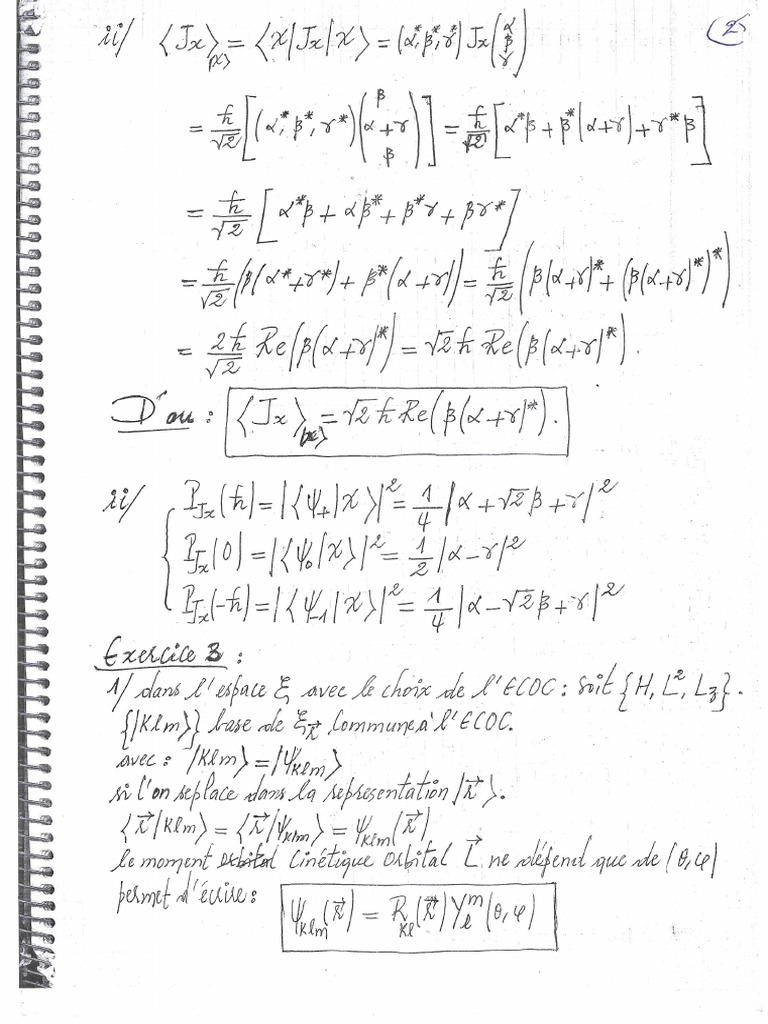 ii/ ⟨Jx⟩|χ⟩ = ⟨χ|Jx|χ⟩ = (α*, β*, γ*) Jx (α β γ)
(2)
= ħ/√2 [(α*, β*, γ*) (β α+γ β)] = ħ/√2 [α*β + β*(α+γ) + γ*β]
= ħ/√2 [α*β + αβ* + β*γ + βγ*]
= ħ/√2 (β(α*+γ*) + β*(α+γ)) = ħ/√2 (β(α+γ)* + (β(α+γ)*)*)
= 2ħ/√2 Re(β(α+γ)*) = √2 ħ Re(β(α+γ)*).
D'ou : ⟨Jx⟩|χ⟩ = √2 ħ Re(β(α+γ)*).
ii/ PJx(ħ) = |⟨ψ+|χ⟩|² = 1/4 |α + √2β + γ|²
PJx(0) = |⟨ψ0|χ⟩|² = 1/2 |α - γ|²
PJx(-ħ) = |⟨ψ-1|χ⟩|² = 1/4 |α - √2β + γ|²
Exercice 3 :
1/ dans l'espace ξ avec le choix de l'ECOC : soit {H, L², Lz}.
{|Klm⟩} base de ξr⃗ commune à l'ECOC.
avec : |Klm⟩ = |ΨKlm⟩
si l'on se place dans la representation |r⃗⟩.
⟨r⃗|Klm⟩ = ⟨r⃗|ΨKlm⟩ = ΨKlm(r⃗)
le moment cinétique orbital L⃗ ne dépend que de (θ,φ)
permet d'écrire : ΨKlm(r⃗) = RKl(r⃗) Yₗᵐ(θ,φ)